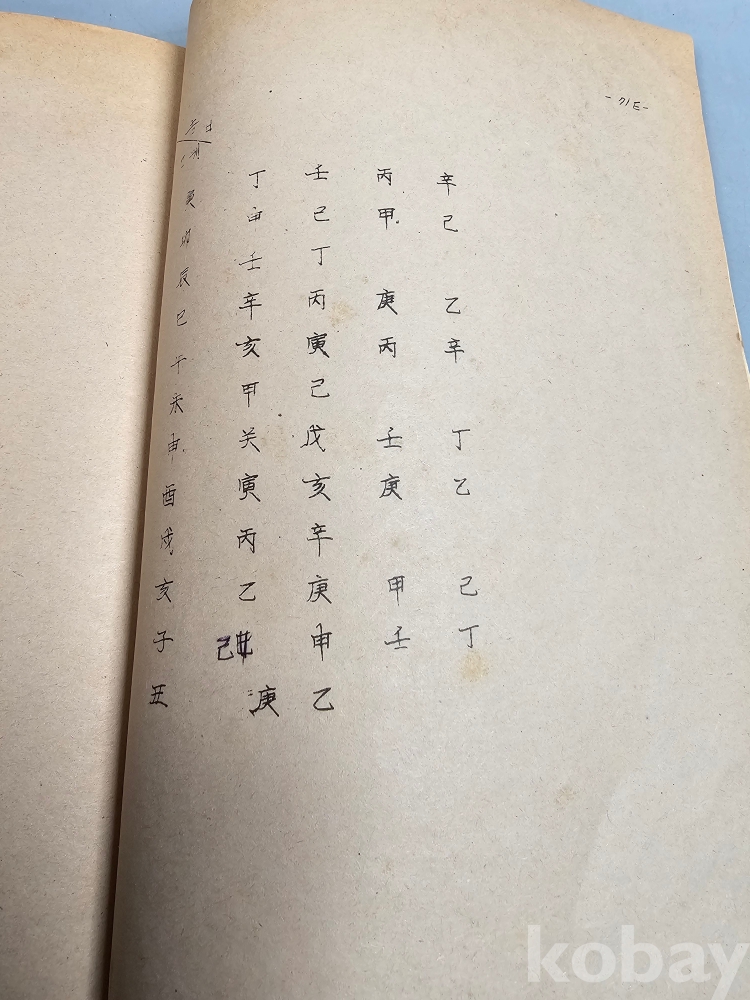 寅 丁 壬 丙 辛
卯 申 己 甲 己
辰 壬 丁
巳 辛 丙 庚 乙
午 亥 寅 丙 辛
未 甲 己
申 癸 戊 壬 丁
酉 寅 亥 庚 乙
戌 丙 辛
亥 乙 庚 甲 己
子 申 壬 丁
丑 庚 乙
kobay